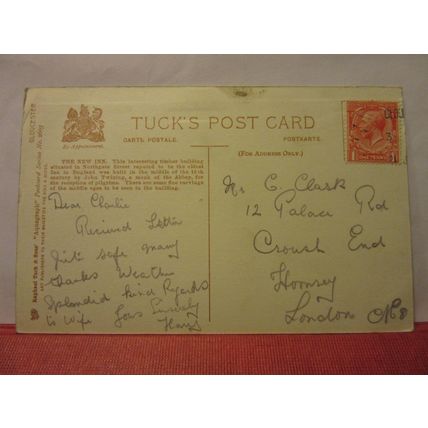 GLOUCESTER
By Appointment.
TUCK'S POST CARD
CARTE POSTALE.
POSTKARTE.
(FOR ADDRESS ONLY.)
THE NEW INN. This interesting timber building
situated in Northgate Street reputed to be the oldest
Inn in England was built in the middle of the 15th
century by John Twining, a monk of the Abbey, for
the reception of pilgrims. There are some fine carvings
of the middle ages to be seen in the building.
Raphael Tuck & Sons' "Aquagraph" Postcard Series No.
Dear Charlie
Received Letter
safe many
thanks Weather
Splendid kind Regards
to Wife Yours Sincerely
Harry
Mr C. Clark
12 Palace Rd
Crouch End
Hornsey
London N8